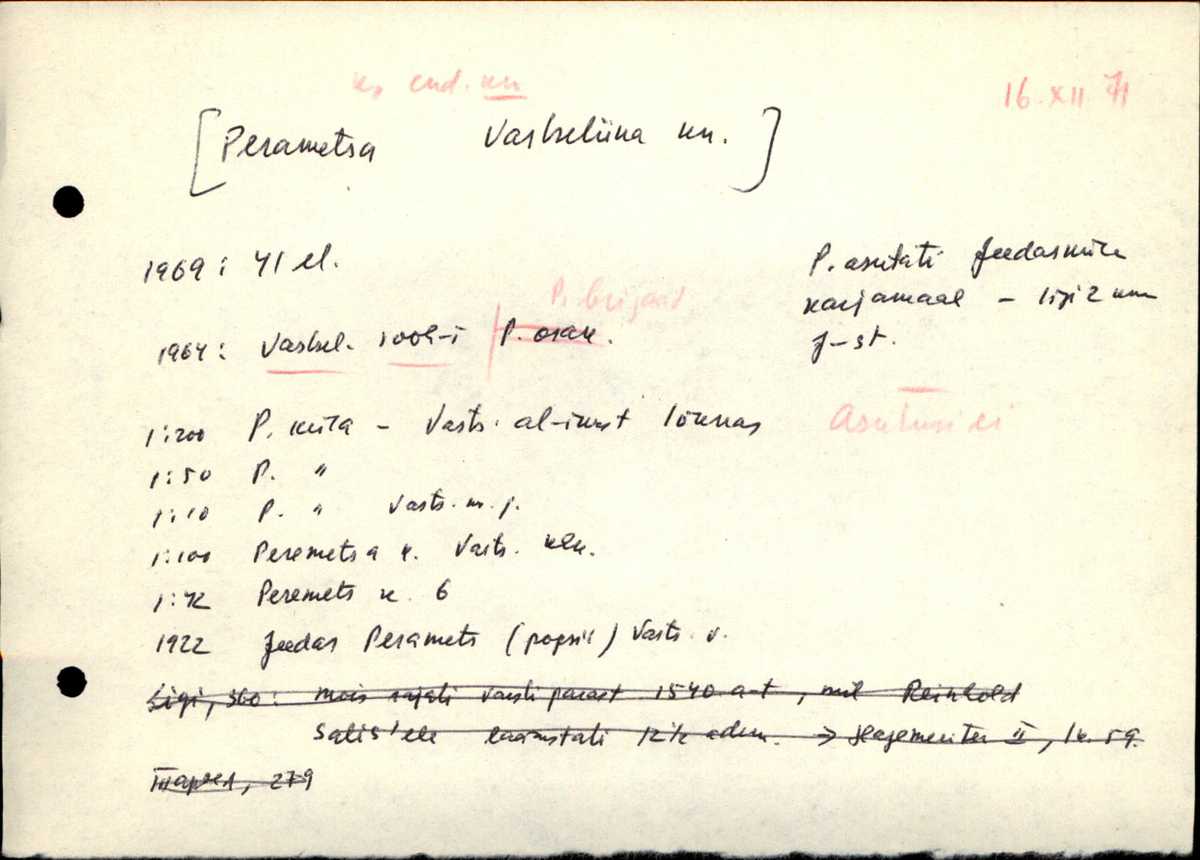 k, end. kn
16.XII 71
[Perametsa Vastseliina kn.]
1969: 41 el.
P. asutati Jeedasküla
karjamaal – ligi 2 km
J-st.
P. brigaad
1964: Vastsel. sooh-i P. osak.
1:200 P. küla – Vasts. al-ikust lõunas
Asutusi ei
1:50 P. "
1:10 P. " Vasts. m. j.
1:100 Peremetsa k. Vasts. klk.
1:42 Peremets k. 6
1922 Jeedas Peramets (popsik) Vasts. v.
Ligi, 360: mõis rajati varsti pärast 1540 a-t, mil Reinhold
Salis'ele läänistati 12½ adm. → Hagemeister II, lk. 59.
279